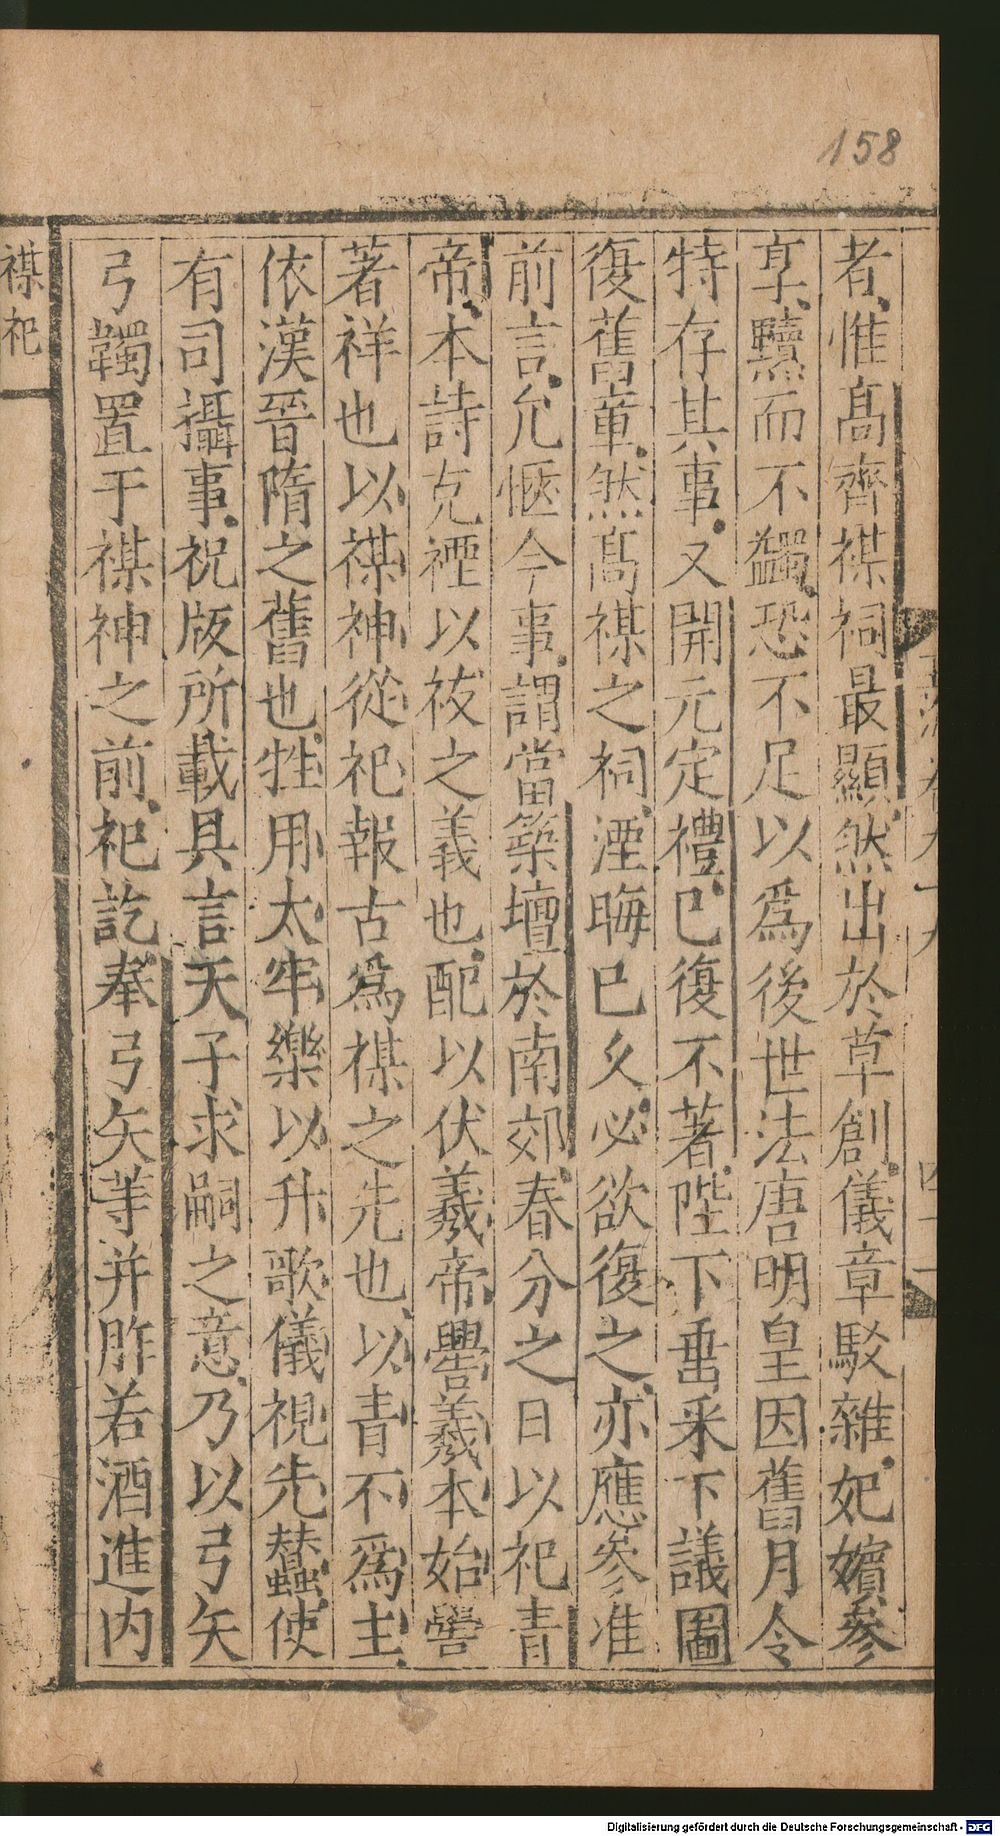 158
者惟髙齊禖祠最顯然出於草創儀章駁雜妃嬪參
享黷而不蠲恐不足以爲後世法唐明皇因舊月令
特存其事又開元定禮已復不著陛下垂采下議圖
復舊章然髙禖之祠湮晦巳久必欲復之亦應參准
前言允愜今事謂當築壇於南郊春分之日以祀青
帝本詩克禋以祓之義也配以伏羲帝嚳羲本始嚳
著祥也以禖神從祀報古爲禖之先也以青不爲主
依漢晉隋之舊也牲用太牢樂以升歌儀視先蠶使
有司攝事祝版所載具言天子求嗣之意乃以弓矢
弓韣置于禖神之前祀訖奉弓矢等并胙若酒進内
禖祀
Digitalisierung gefördert durch die Deutsche Forschungsgemeinschaft - DFG